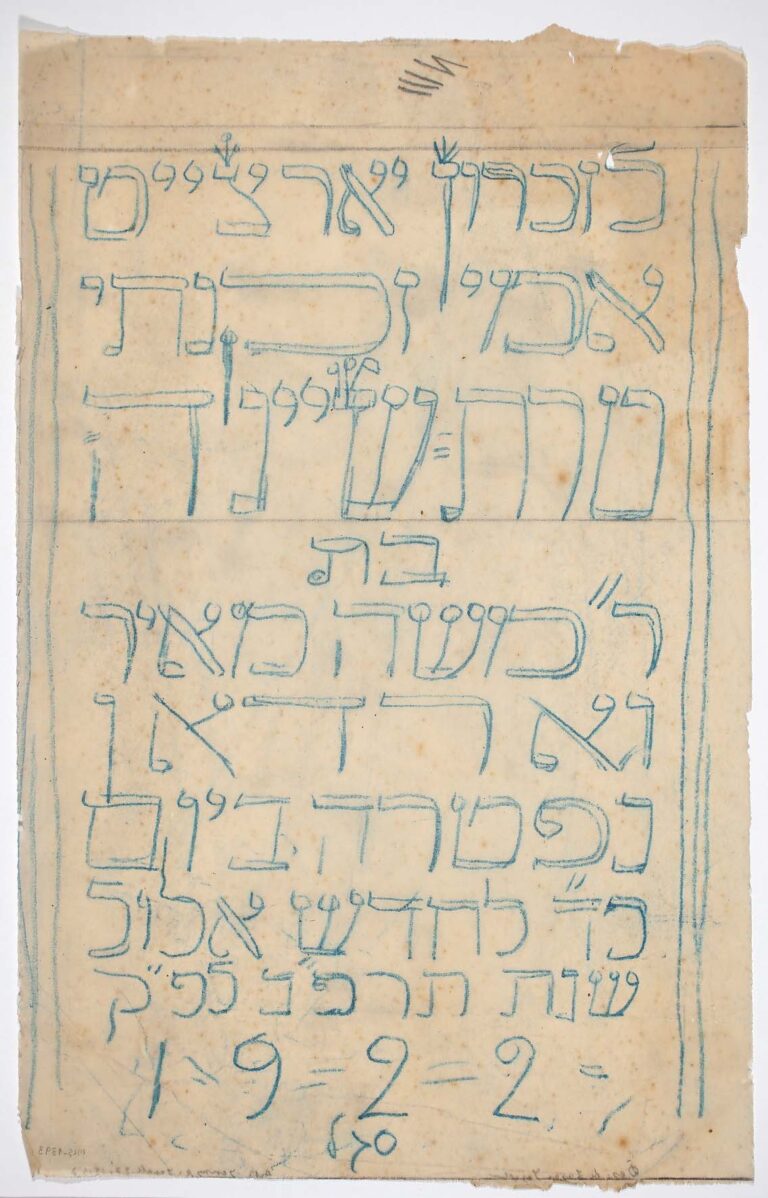 לזכרון יאר צייט
אמי זקנתי
מרת = שיינה =
בת
ר״ משה מאיר
גארדאן
נפטרה ביום
כ״ד לחדש אלול
שנת תרפ״ב לפ״ק
1=9=2=2=